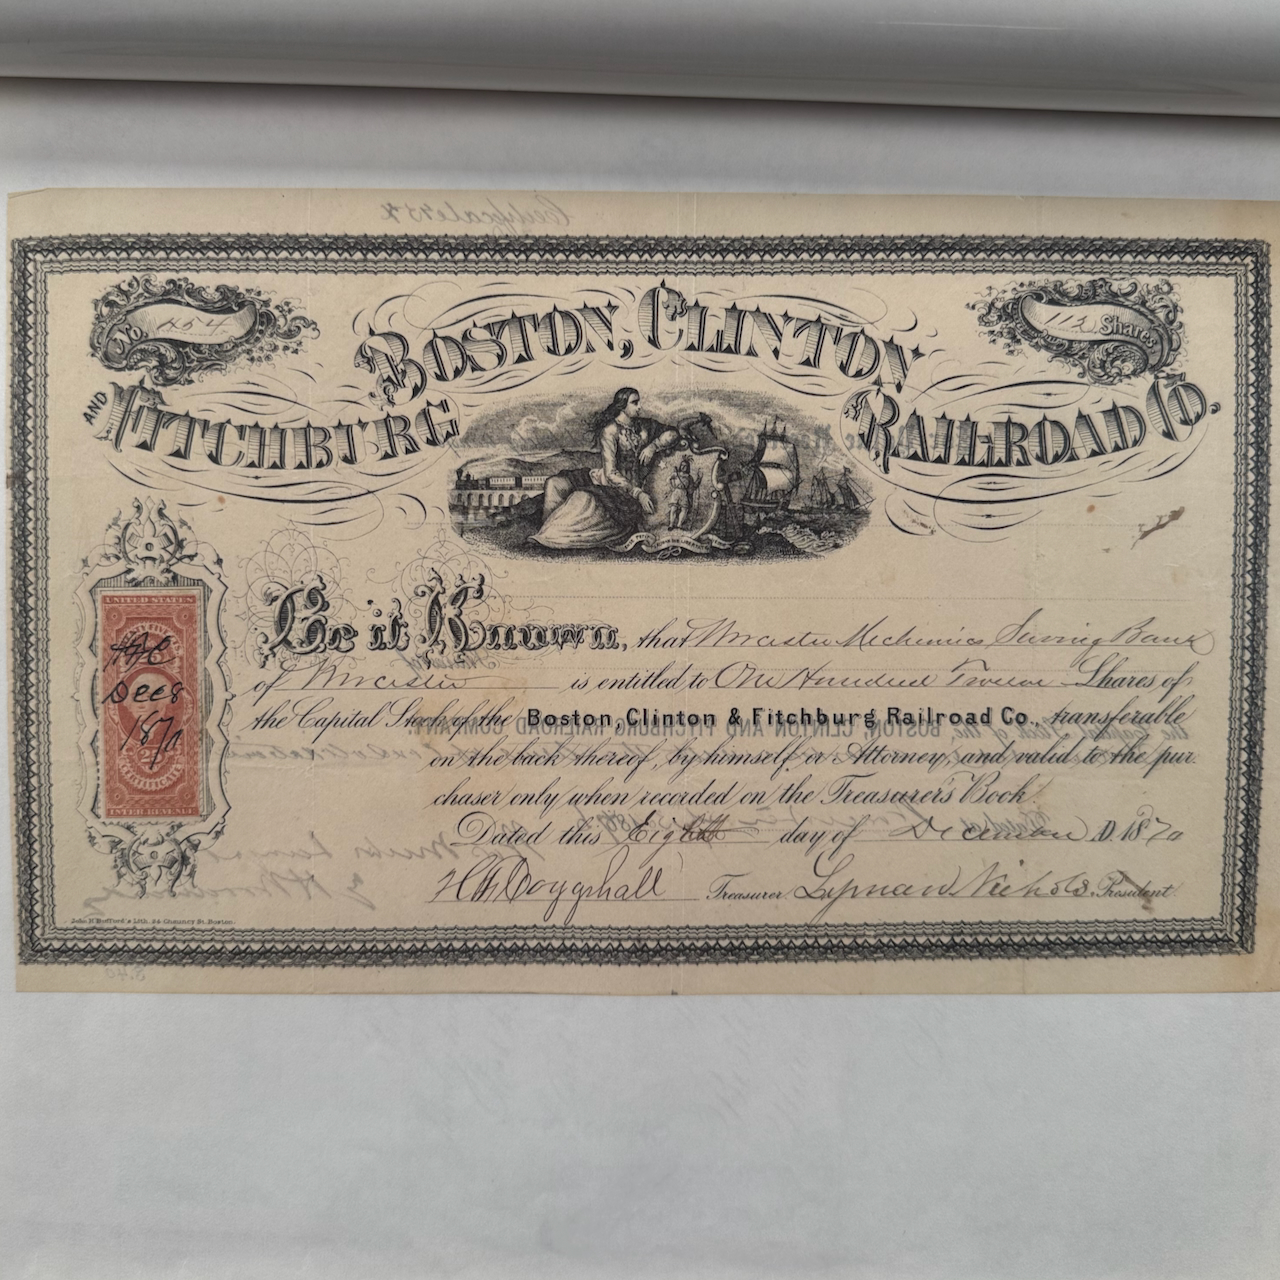 No 454
112 Shares
BOSTON, CLINTON
AND FITCHBURG RAILROAD CO.
UNITED STATES
Be it Known, that Worcester Mechanics Saving Bank
of Worcester is entitled to One Hundred Twelve Shares of
the Capital Stock of the Boston, Clinton & Fitchburg Railroad Co., transferable
on the back thereof, by himself or Attorney, and valid to the pur
chaser only when recorded on the Treasurer's Book
Dated this Eighth day of December A.D. 1870
Treasurer Lyman Nichols President
Dec 8
1870
CERTIFICATE
INTER. REVENUE
John H. Bufford's Lith. Chauncy St. Boston.